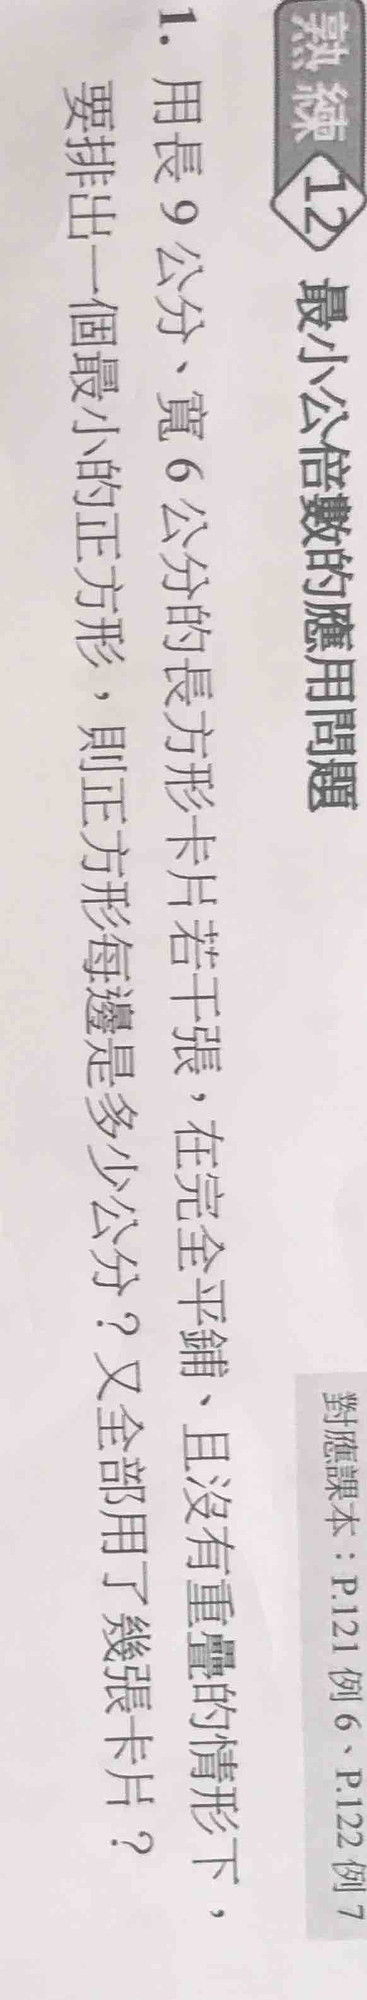 熟練 12 最小公倍數的應用問題
對應課本：P.121 例 6、P.122 例 7
1. 用長 9 公分、寬 6 公分的長方形卡片若干張，在完全平鋪、且沒有重疊的情形下，
要排出一個最小的正方形，則正方形每邊是多少公分？又全部用了幾張卡片？